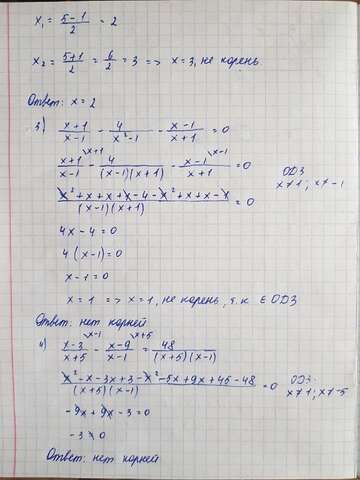 x₁ = (5-1)/2 = 2
x₂ = (5+1)/2 = 6/2 = 3 => x=3, не корень
Ответ: x=2
3) (x+1)/(x-1) - 4/(x²-1) - (x-1)/(x+1) = 0
(x+1)/(x-1) ^(x+1) - 4/((x-1)(x+1)) - (x-1)/(x+1) ^(x-1) = 0
ОДЗ
x≠1; x≠-1
(x²+x+x+x-4-x²+x+x-x)/((x-1)(x+1)) = 0
4x-4=0
4(x-1)=0
x-1=0
x=1 => x=1, не корень, т.к ∈ ОДЗ
Ответ: нет корней
4) (x-3)/(x+5) ^(x-1) - (x-9)/(x-1) ^(x+5) = 48/((x+5)(x-1))
(x²-x-3x+3-x²-5x+9x+45-48)/((x+5)(x-1)) = 0
ОДЗ:
x≠1; x≠-5
-9x+9x-3=0
-3≠0
Ответ: нет корней